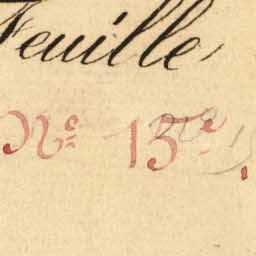 Feuille
Nº 13e.